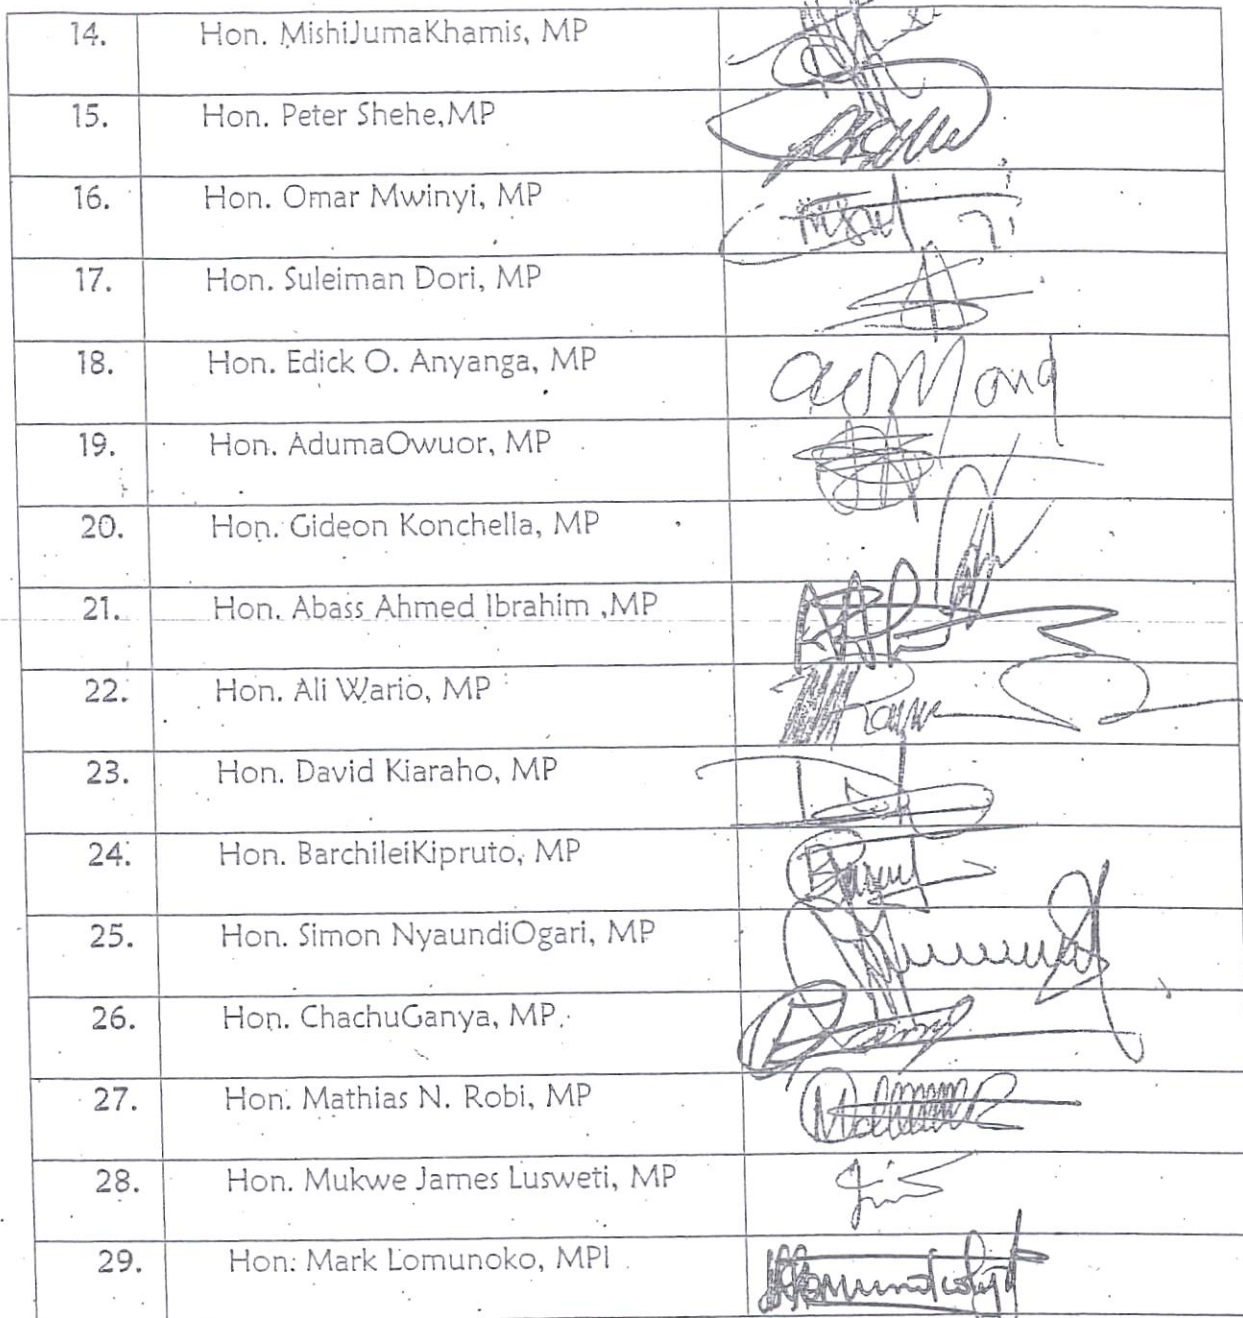 14. Hon. MishiJumaKhamis, MP
15. Hon. Peter Shehe,MP
16. Hon. Omar Mwinyi, MP
17. Hon. Suleiman Dori, MP
18. Hon. Edick O. Anyanga, MP
19. Hon. AdumaOwuor, MP
20. Hon. Gideon Konchella, MP
21. Hon. Abass Ahmed Ibrahim ,MP
22. Hon. Ali Wario, MP
23. Hon. David Kiaraho, MP
24. Hon. BarchileiKipruto, MP
25. Hon. Simon NyaundiOgari, MP
26. Hon. ChachuGanya, MP.
27. Hon. Mathias N. Robi, MP
28. Hon. Mukwe James Lusweti, MP
29. Hon. Mark Lomunoko, MPI